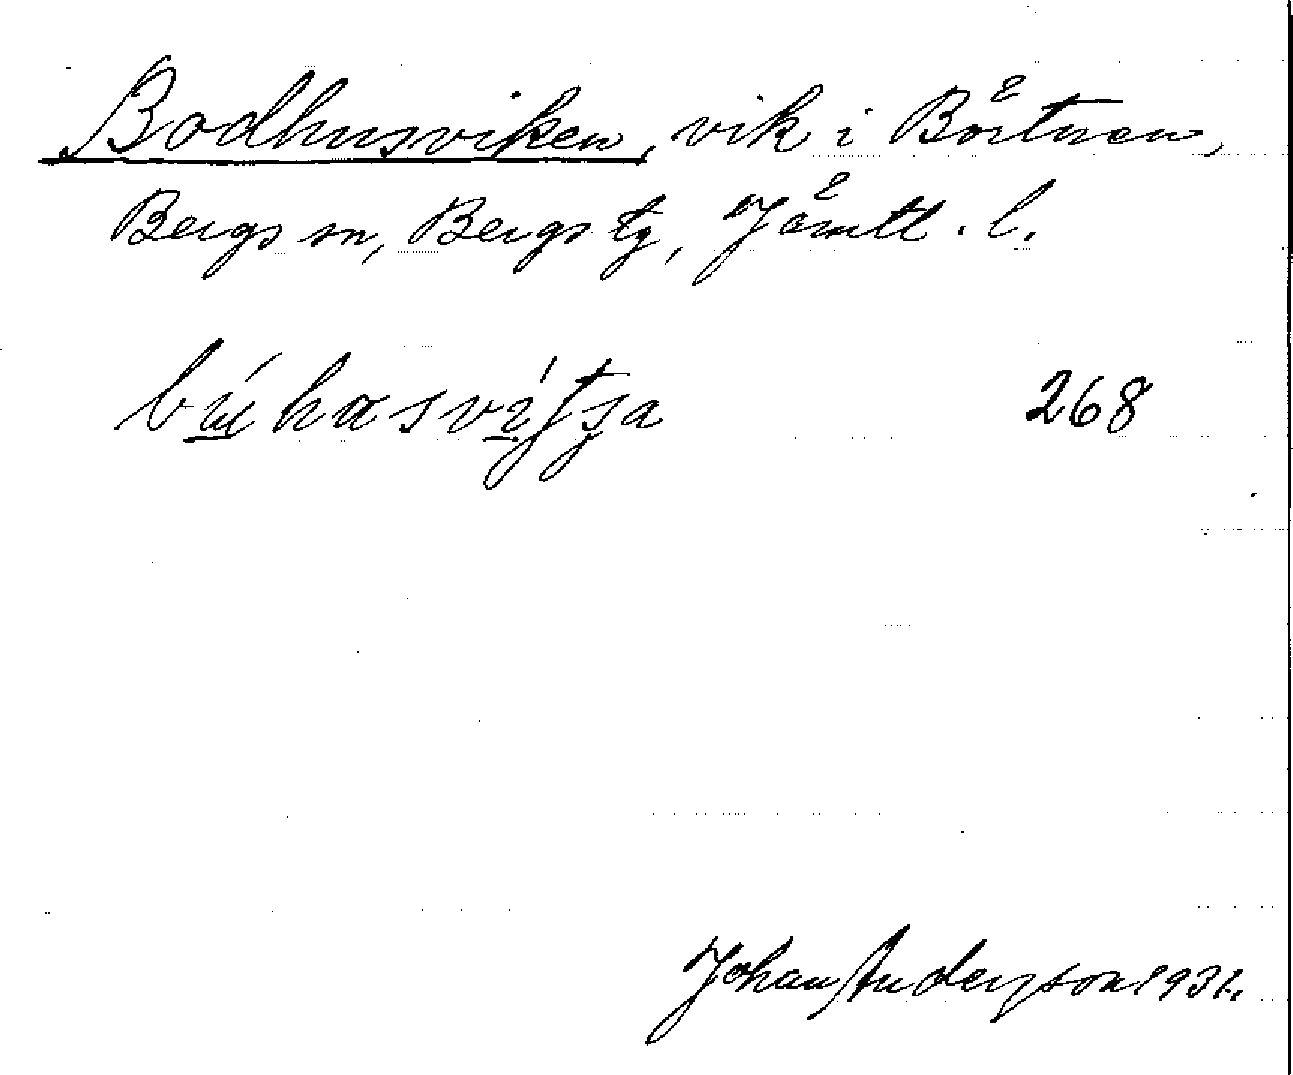 Bodhusviken, vik i Börtnen,
Bergs sn, Bergs tg, Jämtl. l.
búhasvítʃa 268
Johan Anderson 1931.